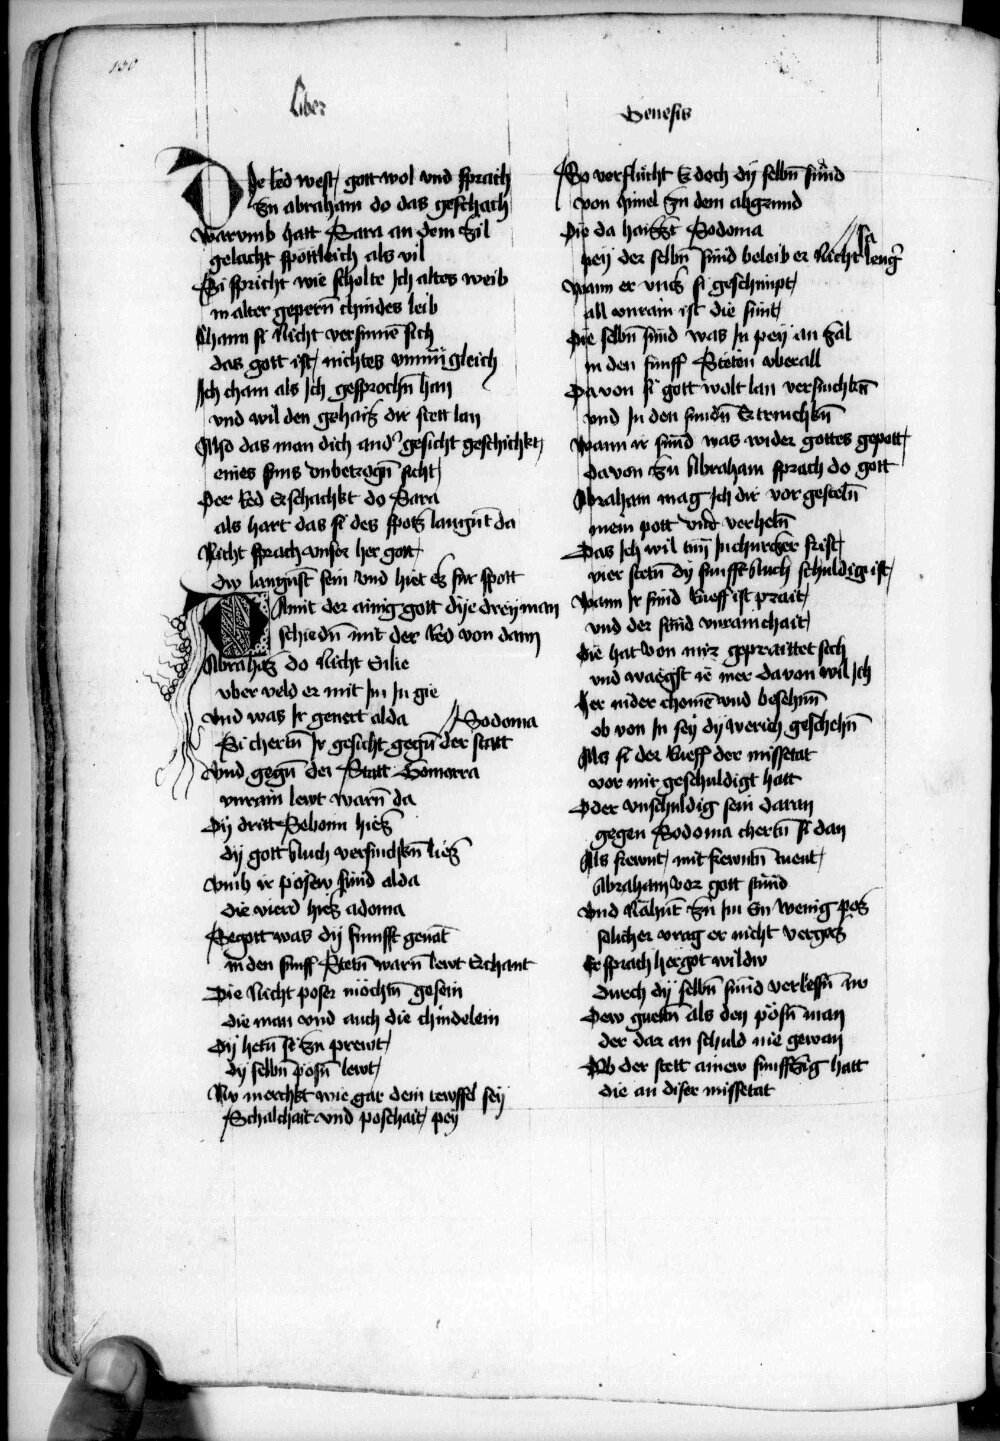 130
Liber
Genesis
Die Red west gott wol vnd sprach
Zu abraham do das geschach
Warumb hatt Sara an dem zil
gelacht spottleich als vil
Si spricht wie scholte Ich altes weib
in alter geperñ chindes leib
Chann si Nicht versinnē sich
das gott ist nichtes vnmügleich
Ich cham als Ich gesprochñ han
vnd wil den gehaiz dir stett lan
Also das man dich and' gesicht geschickt
eines suns vnbetrogñ sicht
Der Red Erschrackt do Sara
als hart das si des spotz laugnt da
Nicht sprach vnser her gott
Dw laugnst sein vnd hiet ez für spott
Damit der ainig gott dÿe dreÿ man
schiedñ mit der Red von dann
Abrahaz do Nicht Enlie
vber veld er mit Im In gie
Vnd was Ir genert alda
Si chertñ Ir gesicht gegñ der statt Sodoma
Vnd gegñ der Statt Gomorra
vnrain lewt warñ da
Dÿ dritt Seboim hiez
dÿ gott auch versinckñ liez
Vmb ir pösew sünd alda
die vierd hiez adoma
Segott was dÿ funfft genāt
in den funff Stetñ warñ lewt Erchant
Die Nicht poser möchtñ gesein
die man vnd auch die chindelein
Dÿ hetñ si zu prewt
dÿ selbñ posñ lewt
Nv merchkt wie gar dem tewffel seÿ
Schalchait vnd poschait peÿ
So verflücht Er doch dÿ selbñ sünd
von himel zu dem abgrund
Die da haizzt Sodoma
peÿ der selbñ sünd beleib er Nicht lenger sa
Wann er vnd si geschimpt
all vnrain ist die sünt
Die selbñ sünd was In peÿ an zal
in den funff Stetñ vberall
Davon si gott wolt lan versinckñ
vnd In den sundñ Ertrinckñ
Wann ir sünd was wider gottes gepott
davon zu Abraham sprach do gott
Abraham mag Ich dir vor gestelñ
mein pott vnd verhelñ
Das Ich wil tun In churczer frist
vier stetñ dÿ funfft auch schuldig ist
Wann Ir sünd Rueff ist prait
vnd der sünd vnrainchait
Die hat von mir gepraittet sich
vnd waegst ie mer davon wil Ich
her nider chomē vnd besehñ
ob von In seÿ dÿ werich geschehñ
Als si der Rueff der missetat
vor mir geschuldigt hatt
Oder vnschuldig sein daran
gegen Sodoma chertñ si dan
Als frewnt mit frewntñ tuent
Abraham vor gott stünd
Vnd Nahnt zu Im Ein wenig paz
solicher vrag er nicht vergaz
Er sprach her got wildw
durch dÿ selbñ sünd verliesñ nw
Dew guetñ als den pösñ man
der dar an schuld nie gewan
Ob der stett ainew funffzig hatt
die an diser missetat